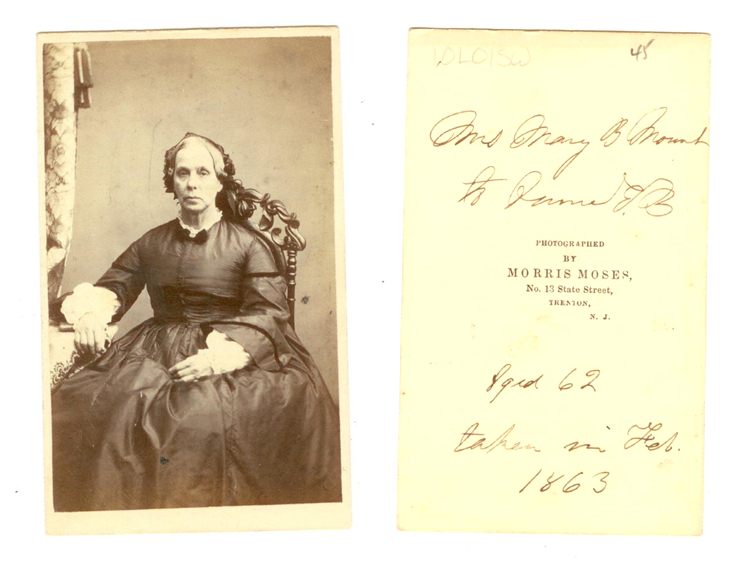 45
Mrs Mary B Mount
to
PHOTOGRAPHED
BY
MORRIS MOSES,
No. 13 State Street,
TRENTON,
N. J.
Aged 62
taken in Feb.
1863